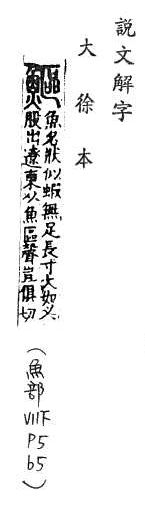 說文解字
大徐本
䲡 魚名狀似蝦無足長寸大如叉
股出遼東从魚區聲豈俱切
(魚部 VII下 P5 b5)